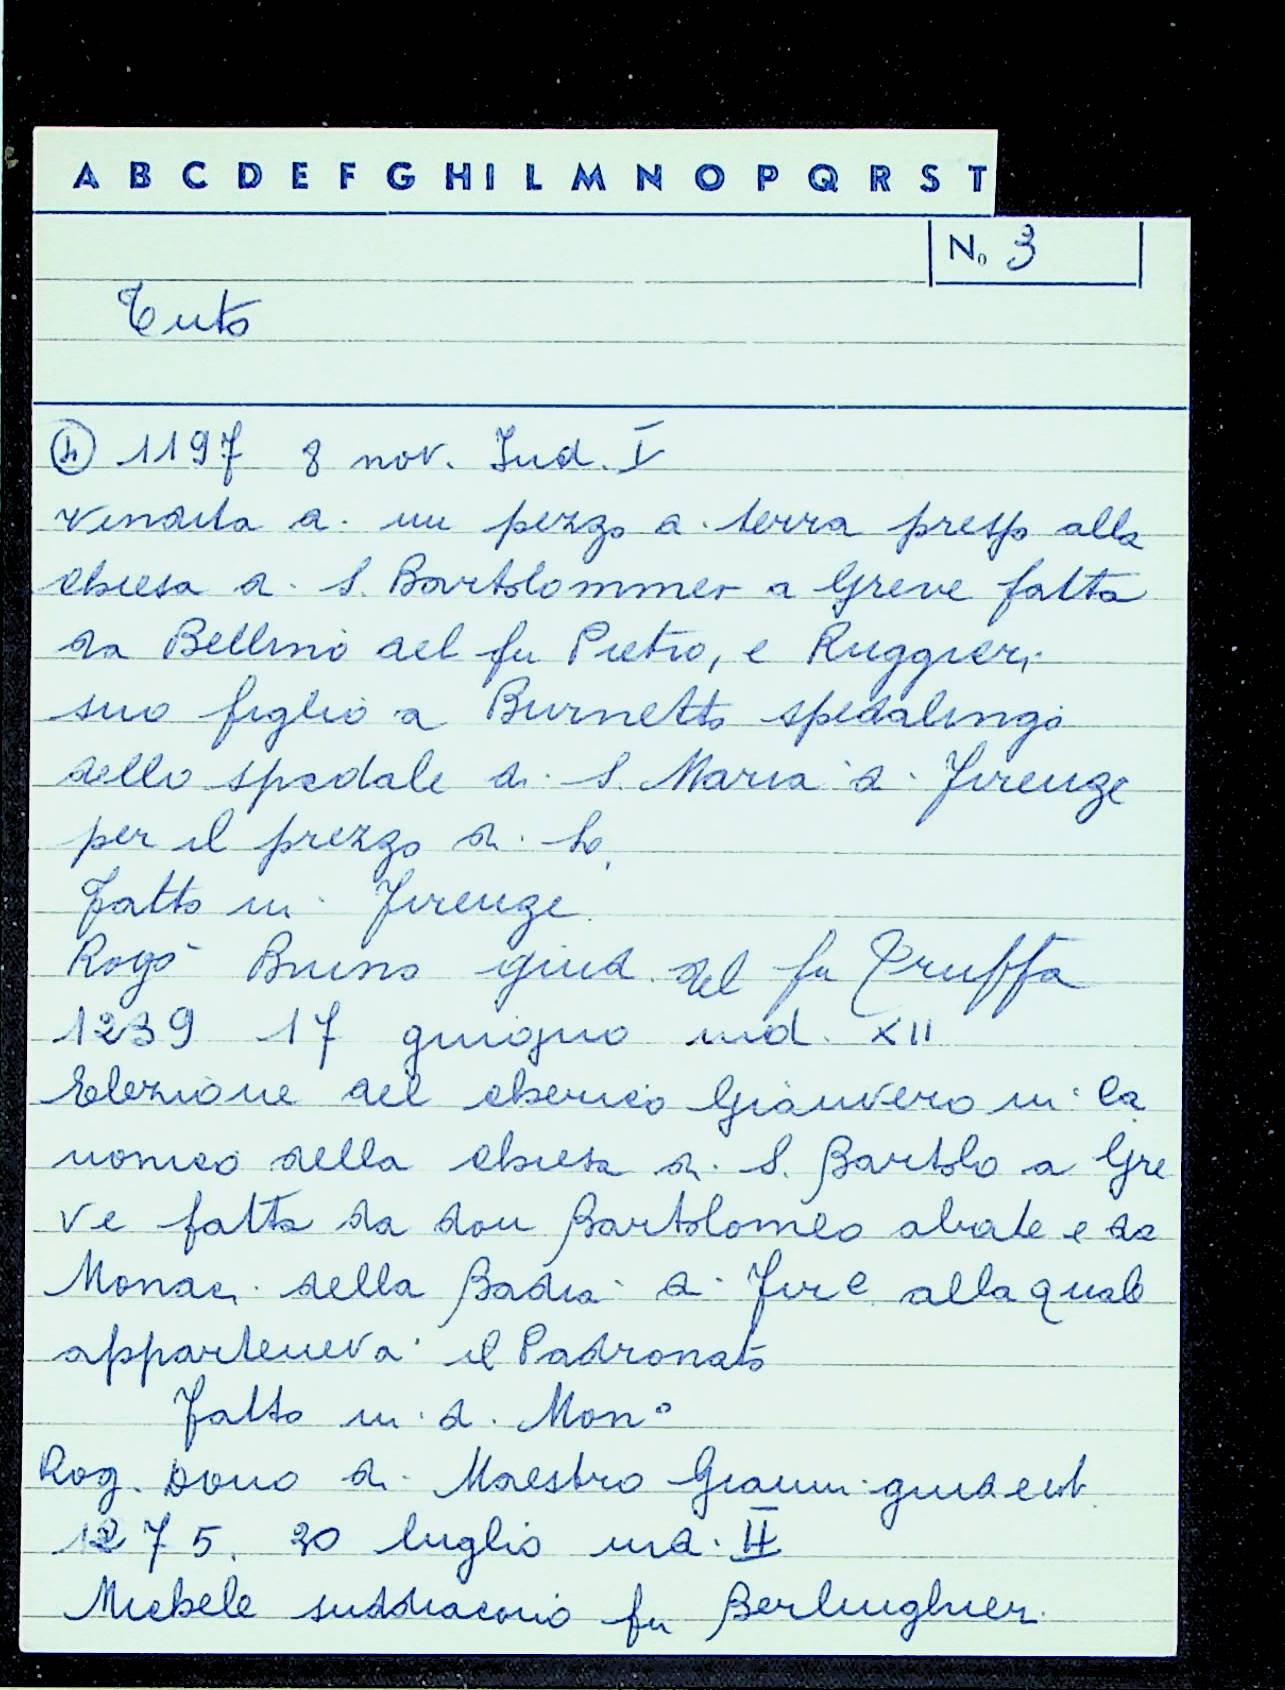 A B C D E F G H I L M N O P Q R S T
No 3
Tuto
④ 1197 8 nov. Ind. V
vendita di un pezzo di terra presso alla
chiesa di S. Bartolommeo a Greve fatta
da Bellino del fu Pietro, e Ruggieri
suo figlio a Burnetto spedalingo
dello spedale di S. Maria di Firenze
per il prezzo di
Fatto in Firenze
Rogò Bruno giud. del fu Truffa
1239 17 giugno ind. XII
Elezione del cherico Gianvero in Ca
nonico della chiesa di S. Bartolo a Gre
ve fatta da don Bartolomeo abate e da
Monaci della Badia di Fire alla quale
apparteneva il Padronato
Fatto in d. Mon°
Rog. Dono di Maestro Gianni giud e not
1275. 20 luglio ind. II
Michele suddiacono fu Berlinghieri